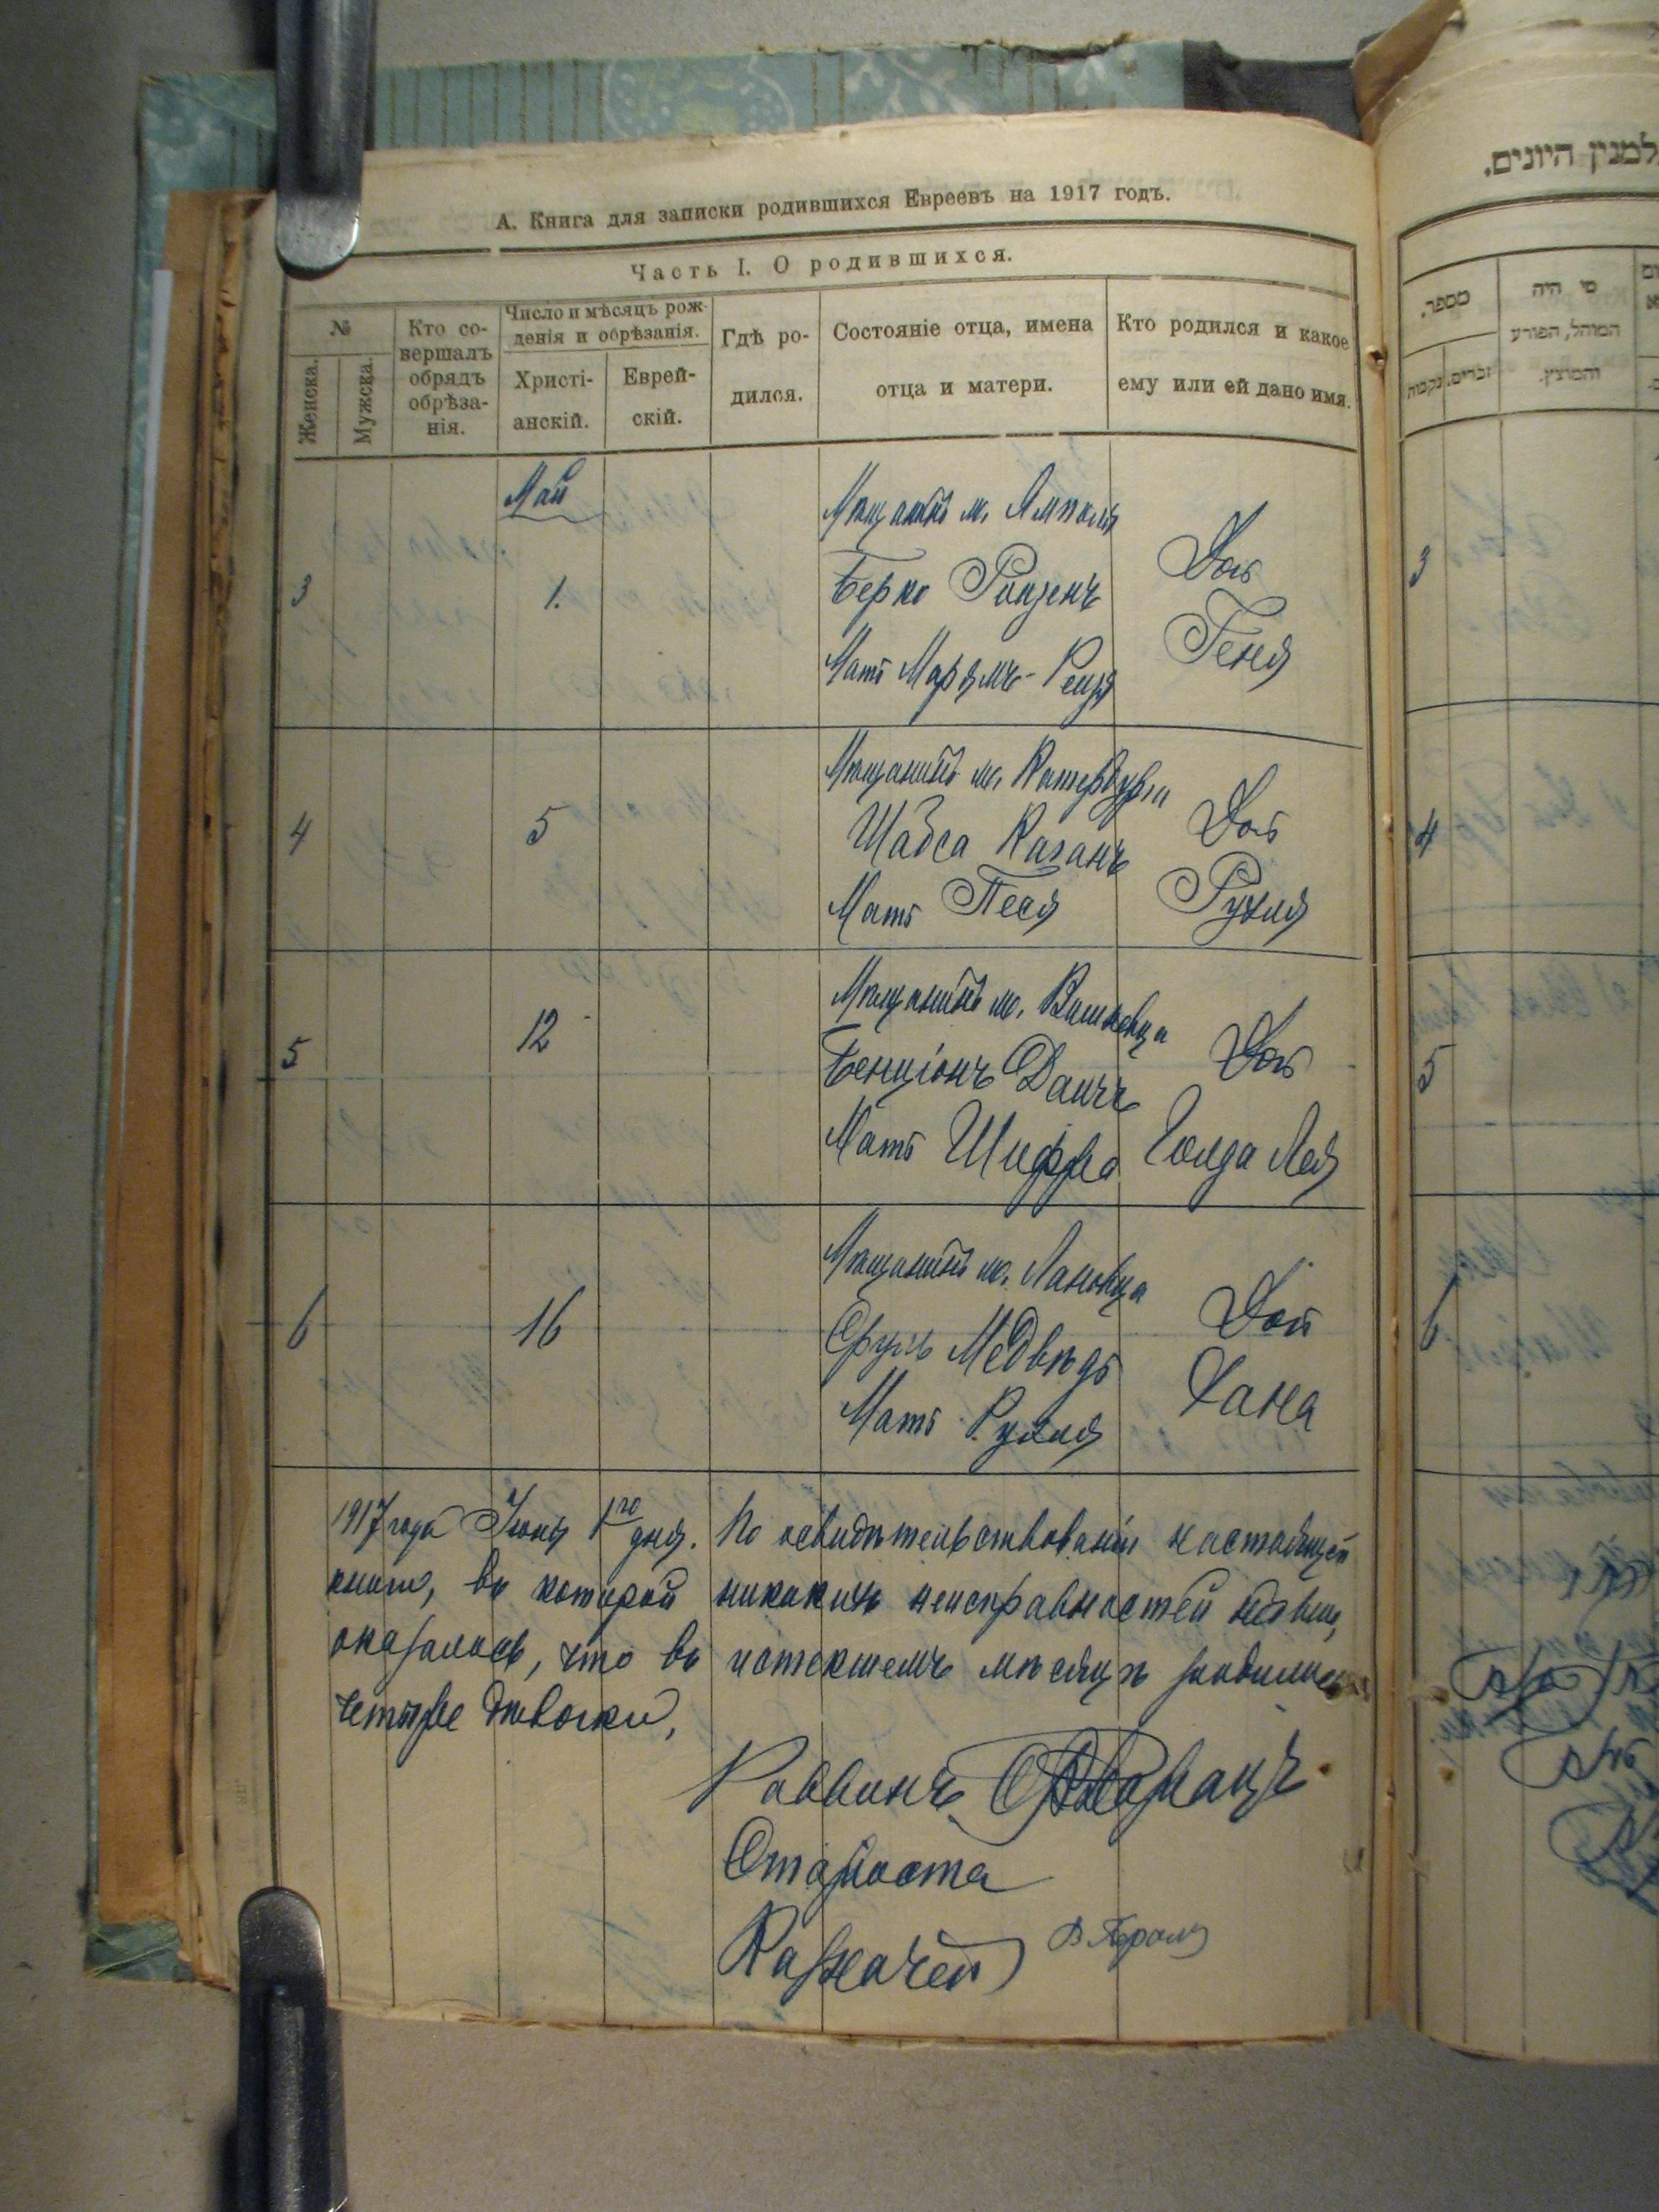 А. Книга для записки родившихся Евреевъ на 1917 годъ.
Часть I. О родившихся.
№
Женска.
Мужска.
Кто со-
вершалъ
обрядъ
обрѣза-
нія.
Число и мѣсяцъ рож-
денія и обрѣзанія.
Христі-
анскій.
Еврей-
скій.
Гдѣ ро-
дился.
Состояніе отца, имена
отца и матери.
Кто родился и какое
ему или ей дано имя.
Май
3
1.
Мѣщанинъ м. Ямполя
Берко
Мать Марямъ-
Дочь
Геня
4
5
Мѣщанинъ м. Катербурга
Шабса Каганъ
Мать Песя
Дочь
Рухля
5
12
Мѣщанинъ м. Вишневца
Бенціонъ
Мать Шифра
Дочь
Голда Лея
6
16
Мѣщанинъ м. Лановца
Сруль Медвѣдь
Мать Рухля
Дочь
Хана
1917 года Іюня 1го дня. По освидѣтельствованіи настоящей
книги, въ которой никакихъ неисправностей нѣтъ,
оказалось, что въ истекшемъ мѣсяцѣ родились
четыре дѣвочки.
Раввинъ
Староста
Казначей
למנין היונים.
מספר.
זכרים.
נקבות
מי היה
המוהל, הפורע
והמוצץ.
3
4
5
6